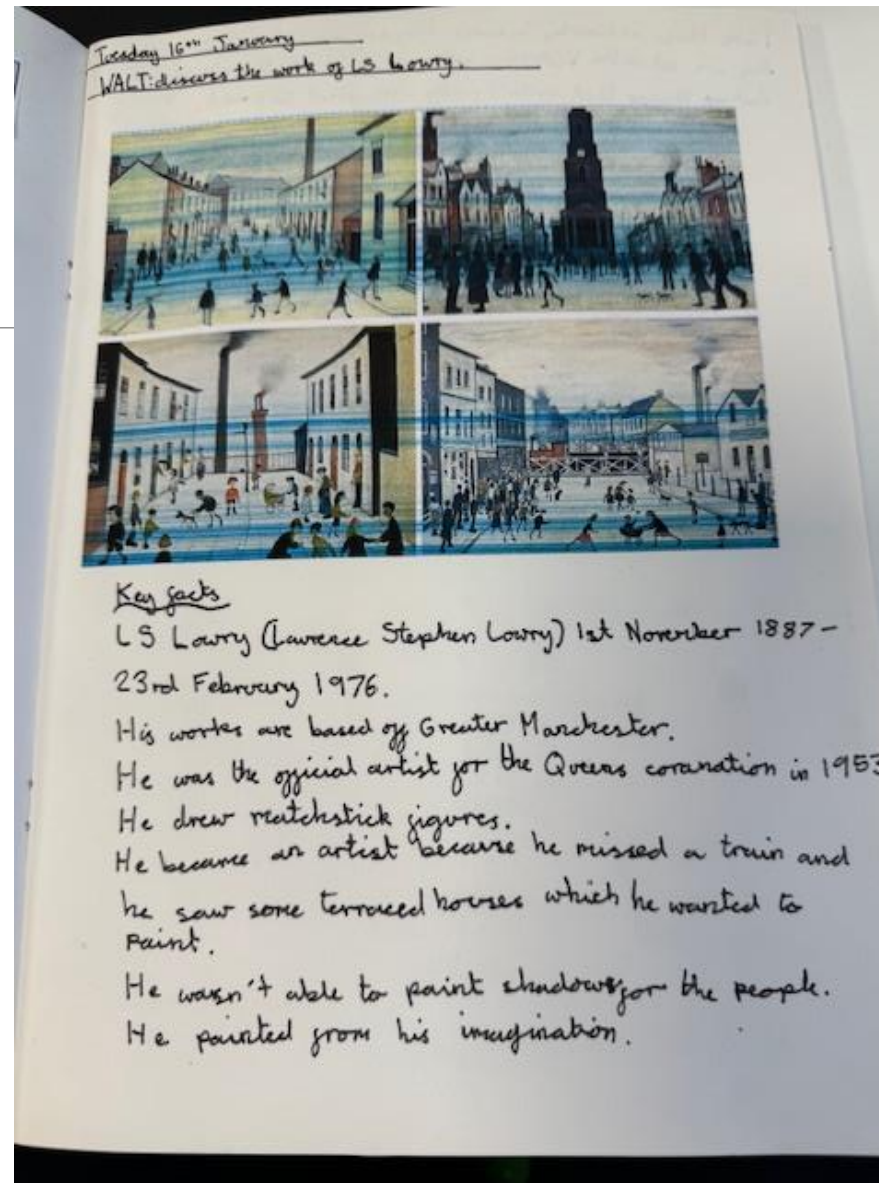 Tuesday 16th January
WALT: discuss the work of LS Lowry.
Key facts
LS Lowry (Lawrence Stephen Lowry) 1st November 1887 -
23rd February 1976.
His works are based off Greater Manchester.
He was the official artist for the Queens coranation in 1953
He drew matchstick figures.
He became an artist because he missed a train and
he saw some terraced houses which he wanted to
paint.
He wasn't able to paint shadows for the people.
He painted from his imagination.